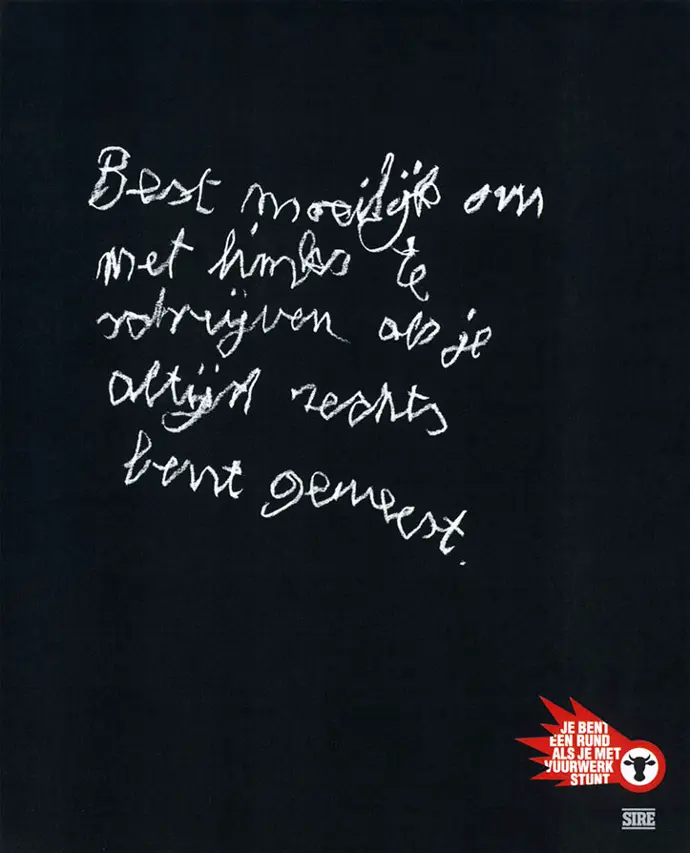 Best moeilijk om
met links te
schrijven als je
altijd rechts
bent geweest.
JE BENT
EEN RUND
ALS JE MET
VUURWERK
STUNT
SIRE